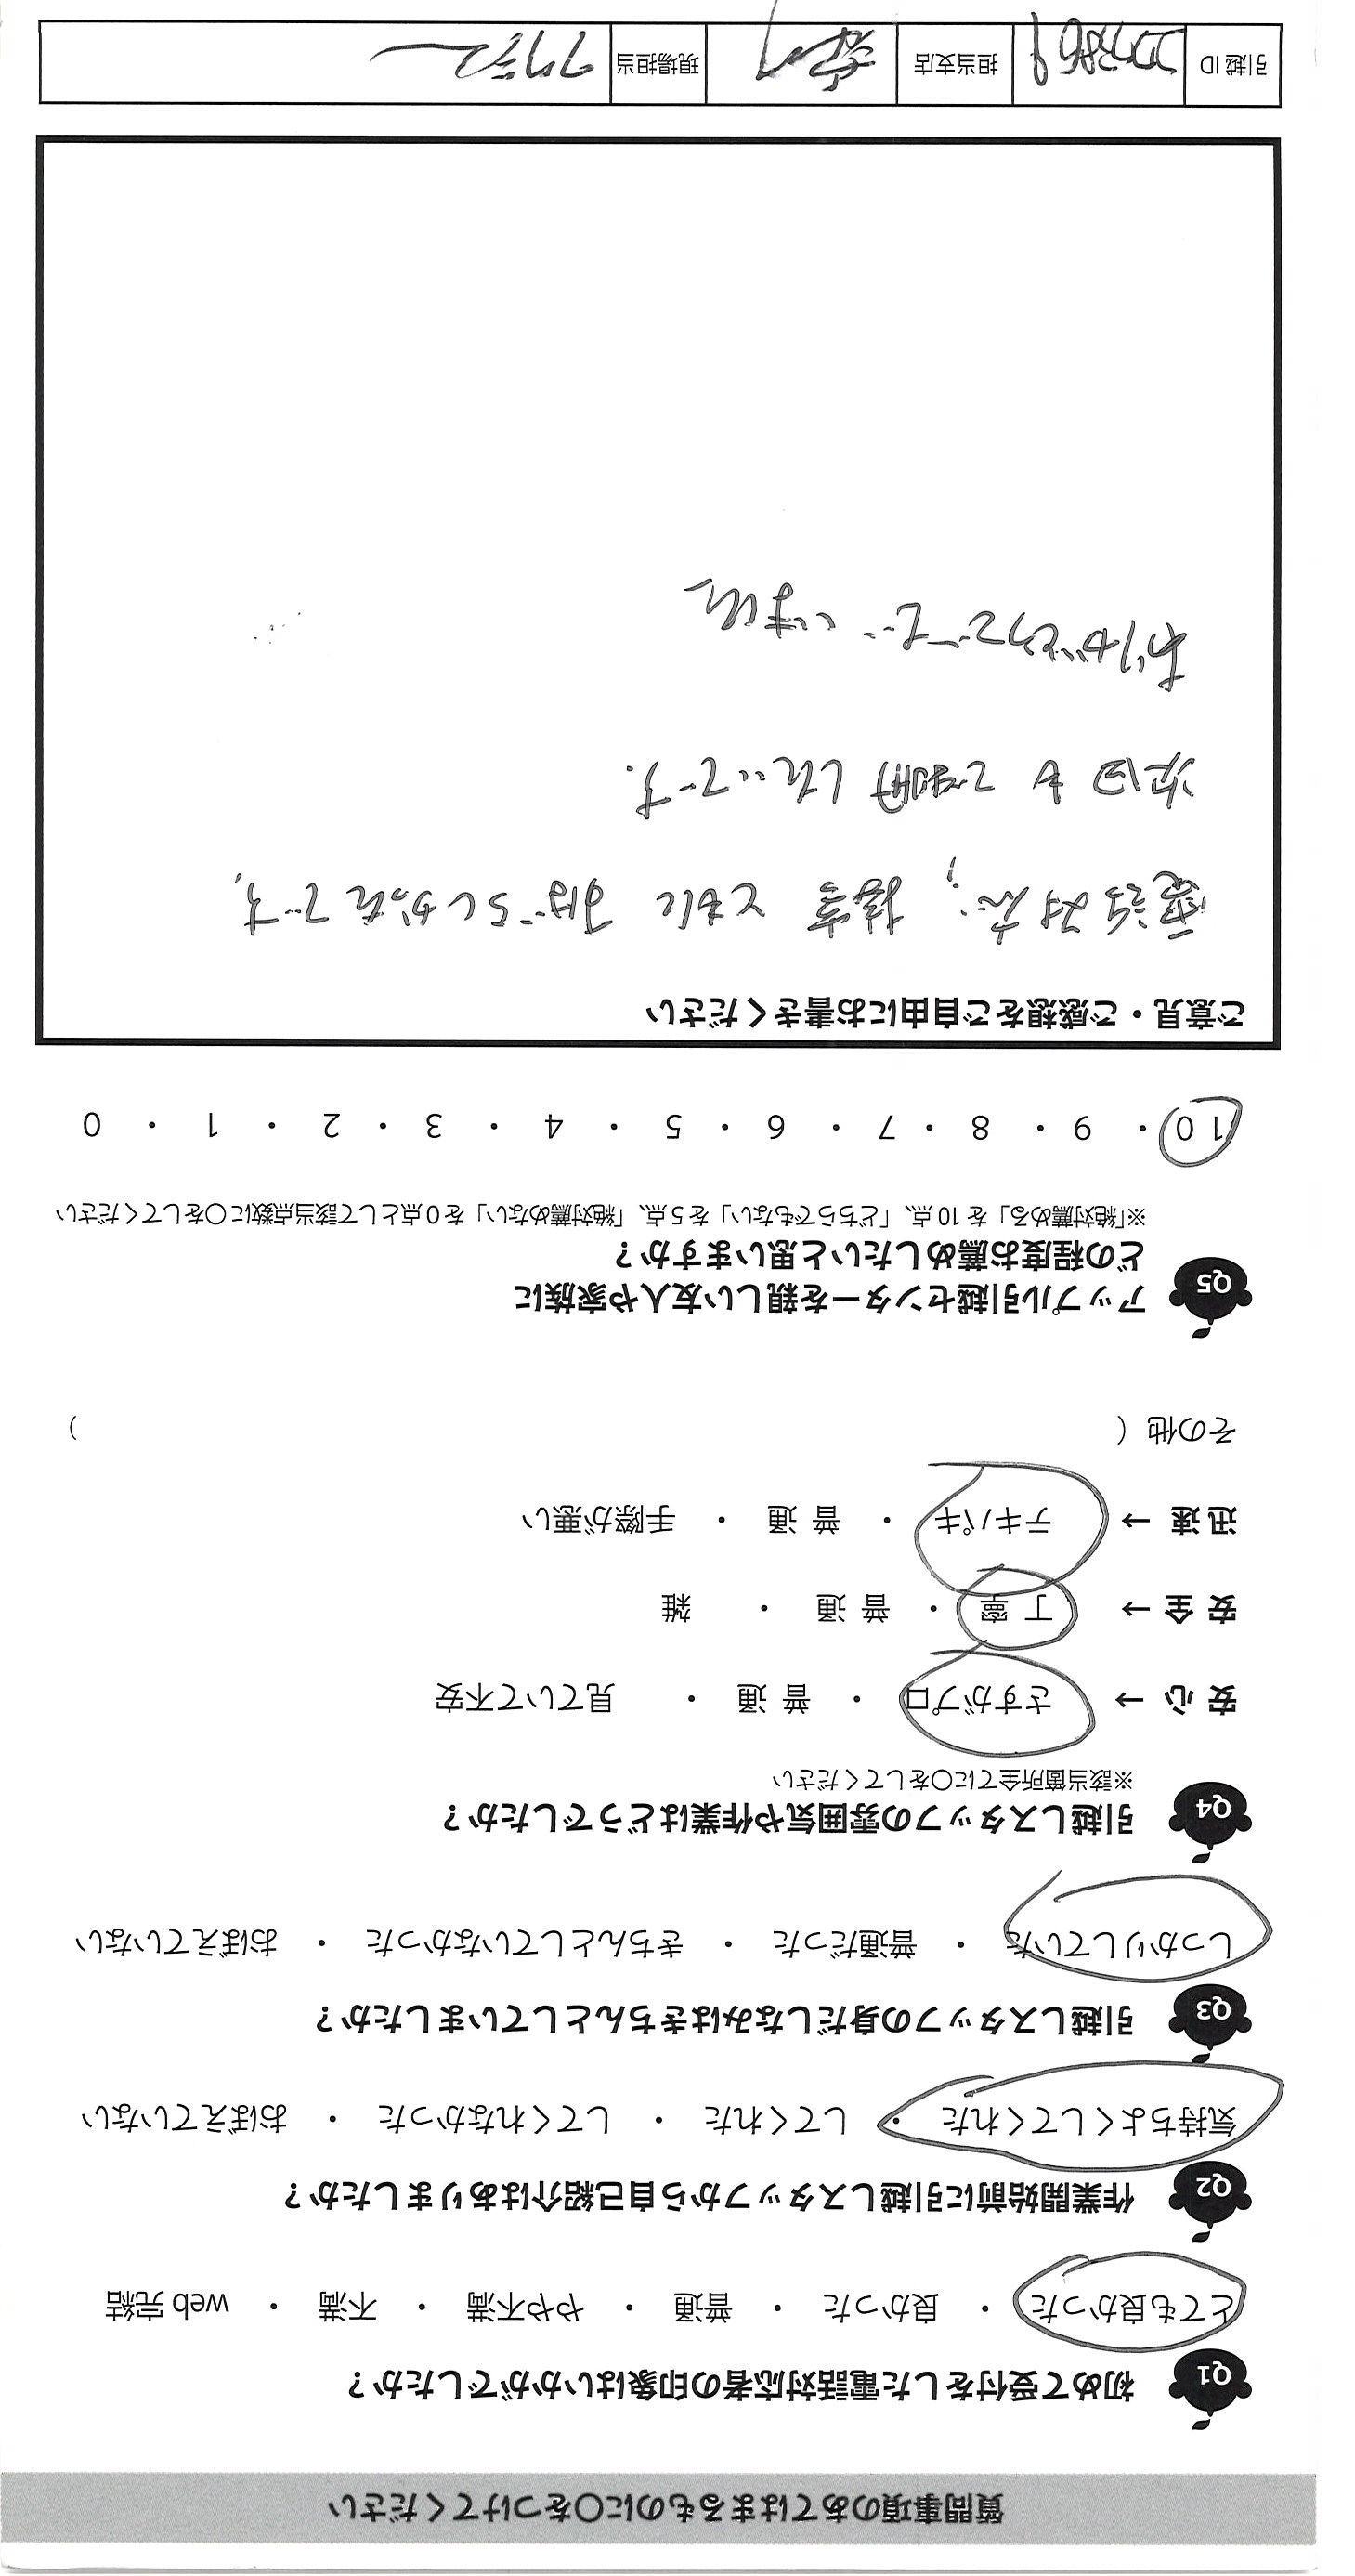 質問事項のあてはまるものに〇をつけてください
Q1 初めて受付をした電話対応者の印象はいかがでしたか？
とても良かった ・ 良かった ・ 普通 ・ やや不満 ・ 不満 ・ web 完結
Q2 作業開始前に引越しスタッフから自己紹介はありましたか？
気持ちよくしてくれた ・ してくれた ・ してくれなかった ・ おぼえていない
Q3 引越しスタッフの身だしなみはきちんとしていましたか？
しっかりしていた ・ 普通だった ・ きちんとしていなかった ・ おぼえていない
Q4 引越しスタッフの雰囲気や作業はどうでしたか？
※該当箇所全てに〇をしてください
安心 → さすがプロ ・ 普通 ・ 見ていて不安
安全 → 丁寧 ・ 普通 ・ 雑
迅速 → テキパキ ・ 普通 ・ 手際が悪い
その他（ ）
Q5 アップル引越センターを親しい友人や家族に
どの程度お薦めしたいと思いますか？
※「絶対薦める」を 10 点、「どちらでもない」を 5 点、「絶対薦めない」を 0 点として該当点数に〇をしてください
10 ・ 9 ・ 8 ・ 7 ・ 6 ・ 5 ・ 4 ・ 3 ・ 2 ・ 1 ・ 0
ご意見・ご感想をご自由にお書きください
電話対応、接客 ともに すばらしかったです。
次回も ご利用 したいです。
ありがとうございました
引越 ID 担当支店 現場担当